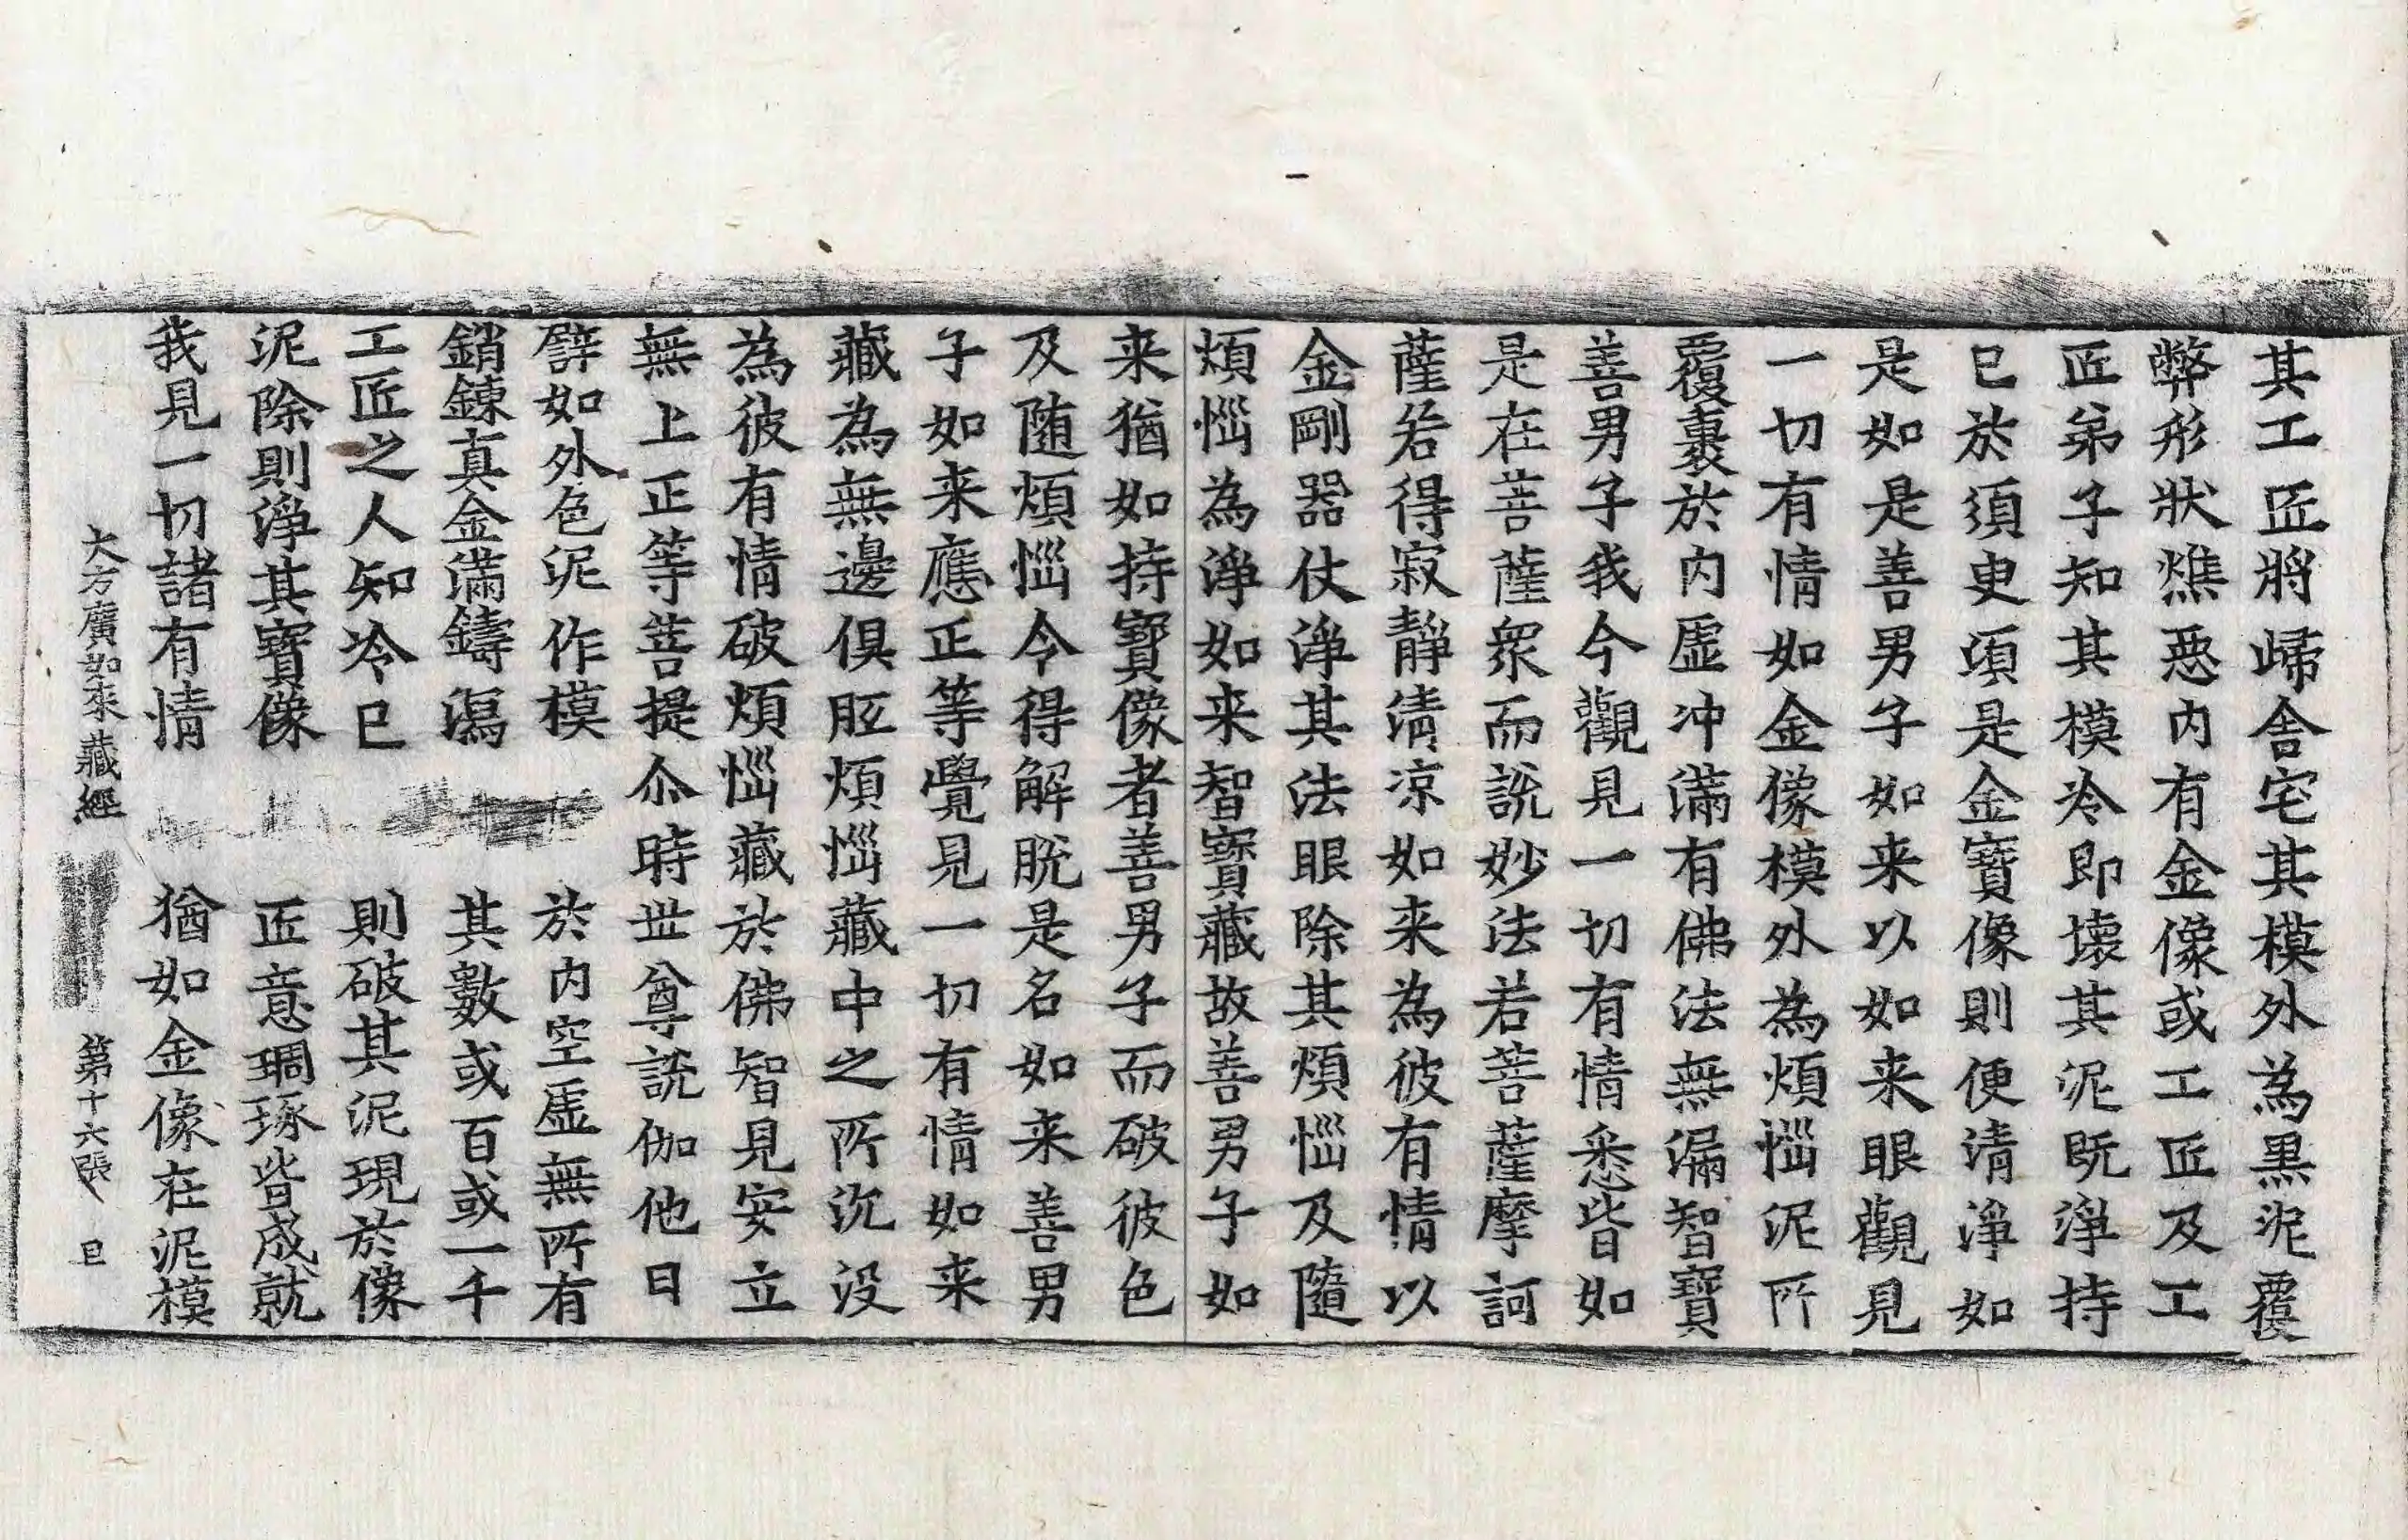 其工匠將歸舍宅其模外為黒泥覆
弊形狀燋惡内有金像或工匠及工
匠弟子知其模冷即壊其泥既淨持
已於須更頃是金寶像則便清淨如
是如是善男子如来以如来眼觀見
一切有情如金像模外為煩惱泥所
覆裹於内虛冲滿有佛法無漏智寶
善男子我今觀見一切有情悉皆如
是在菩薩衆而說妙法若菩薩摩訶
薩若得寂靜清凉如来為彼有情以
金剛器仗淨其法眼除其煩惱及隨
煩惱為淨如来智寶藏故善男子如
来猶如持寶像者善男子而破彼色
及随煩惱令得解脫是名如来善男
子如来應正等覺見一切有情如来
藏為無邊俱胝煩惱藏中之所沉没
為彼有情破煩惱藏於佛智見安立
無上正等菩提尒時世尊說伽他曰
譬如外色泥作模 於内空虛無所有
銷鍊真金滿鑄瀉 其數或百或一千
工匠之人知冷已 則破其泥現於像
泥除則淨其寶像 匠意琱琢皆成就
我見一切諸有情 猶如金像在泥模
大方廣如来藏經 第十六張 㠯